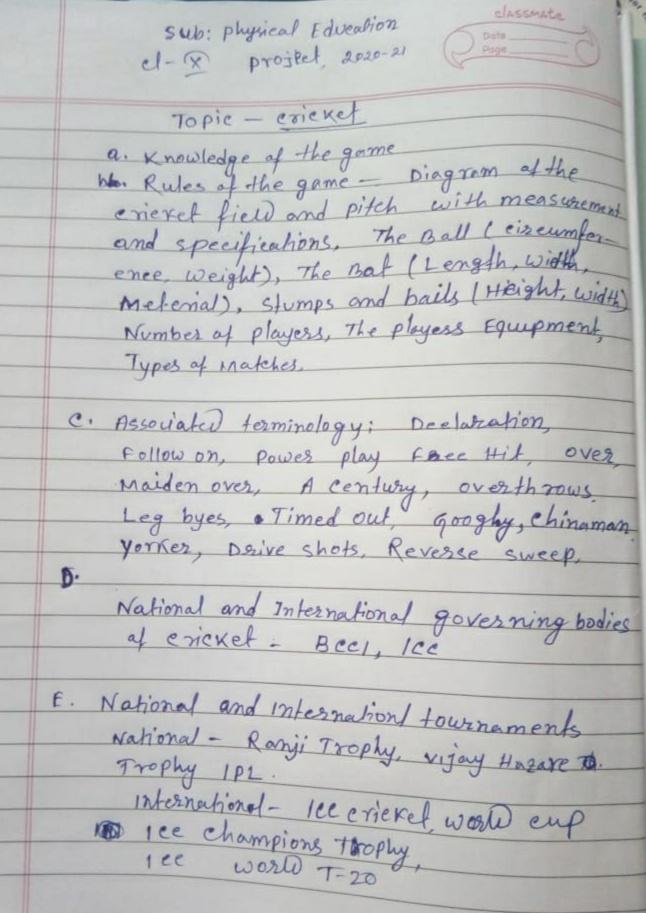 classmate
Date
Page
Sub: Physical Education
cl- X project, 2020-21
Topic - cricket
a. Knowledge of the game
b. Rules of the game - Diagram of the
cricket field and pitch with measurement
and specifications, The Ball (circumfer-
ence, weight), The Bat (Length, width,
Meterial), Stumps and bails (Height, width)
Number of players, The players Equipment,
Types of matches.
C. Associated terminology; Declaration,
Follow on, Power play Free Hit, over,
Maiden over, A century, overthrows,
Leg byes, Timed out, googhy, chinaman
Yorker, Drive shots, Reverse sweep,
D.
National and International governing bodies
of cricket - BCCI, ICC
E. National and internationl tournaments
National - Ranji Trophy, vijay Hazare
Trophy IPL.
international - ICC cricket, world cup
ICC champions trophy,
ICC world T-20